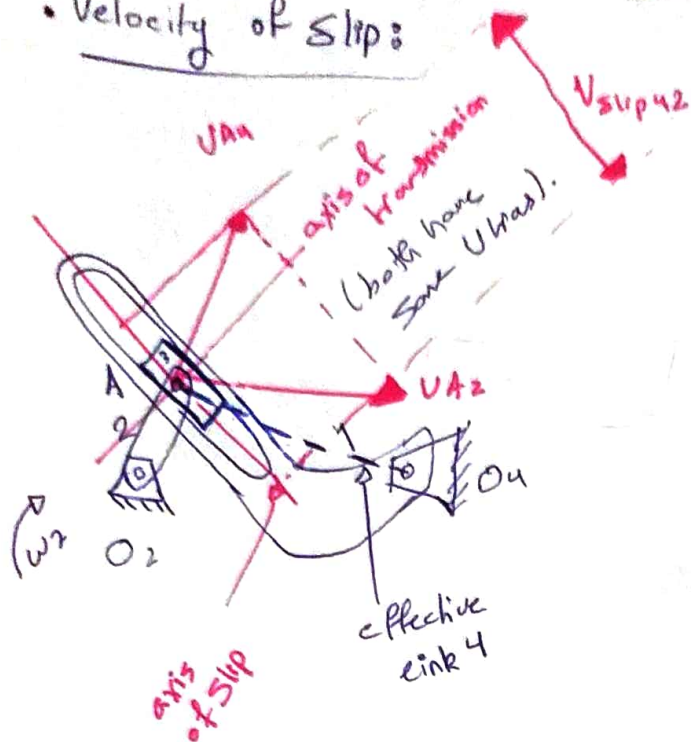 • Velocity of Slip:
VA4
axis of
transmission
(both have
same Vtras).
Vslip42
3
A
2
VA2
4
O4
ω2
O2
effective
link 4
axis
of slip